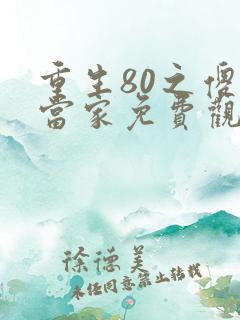 重生80之傻
當家免費觀
徐德美
未经同意禁止转载